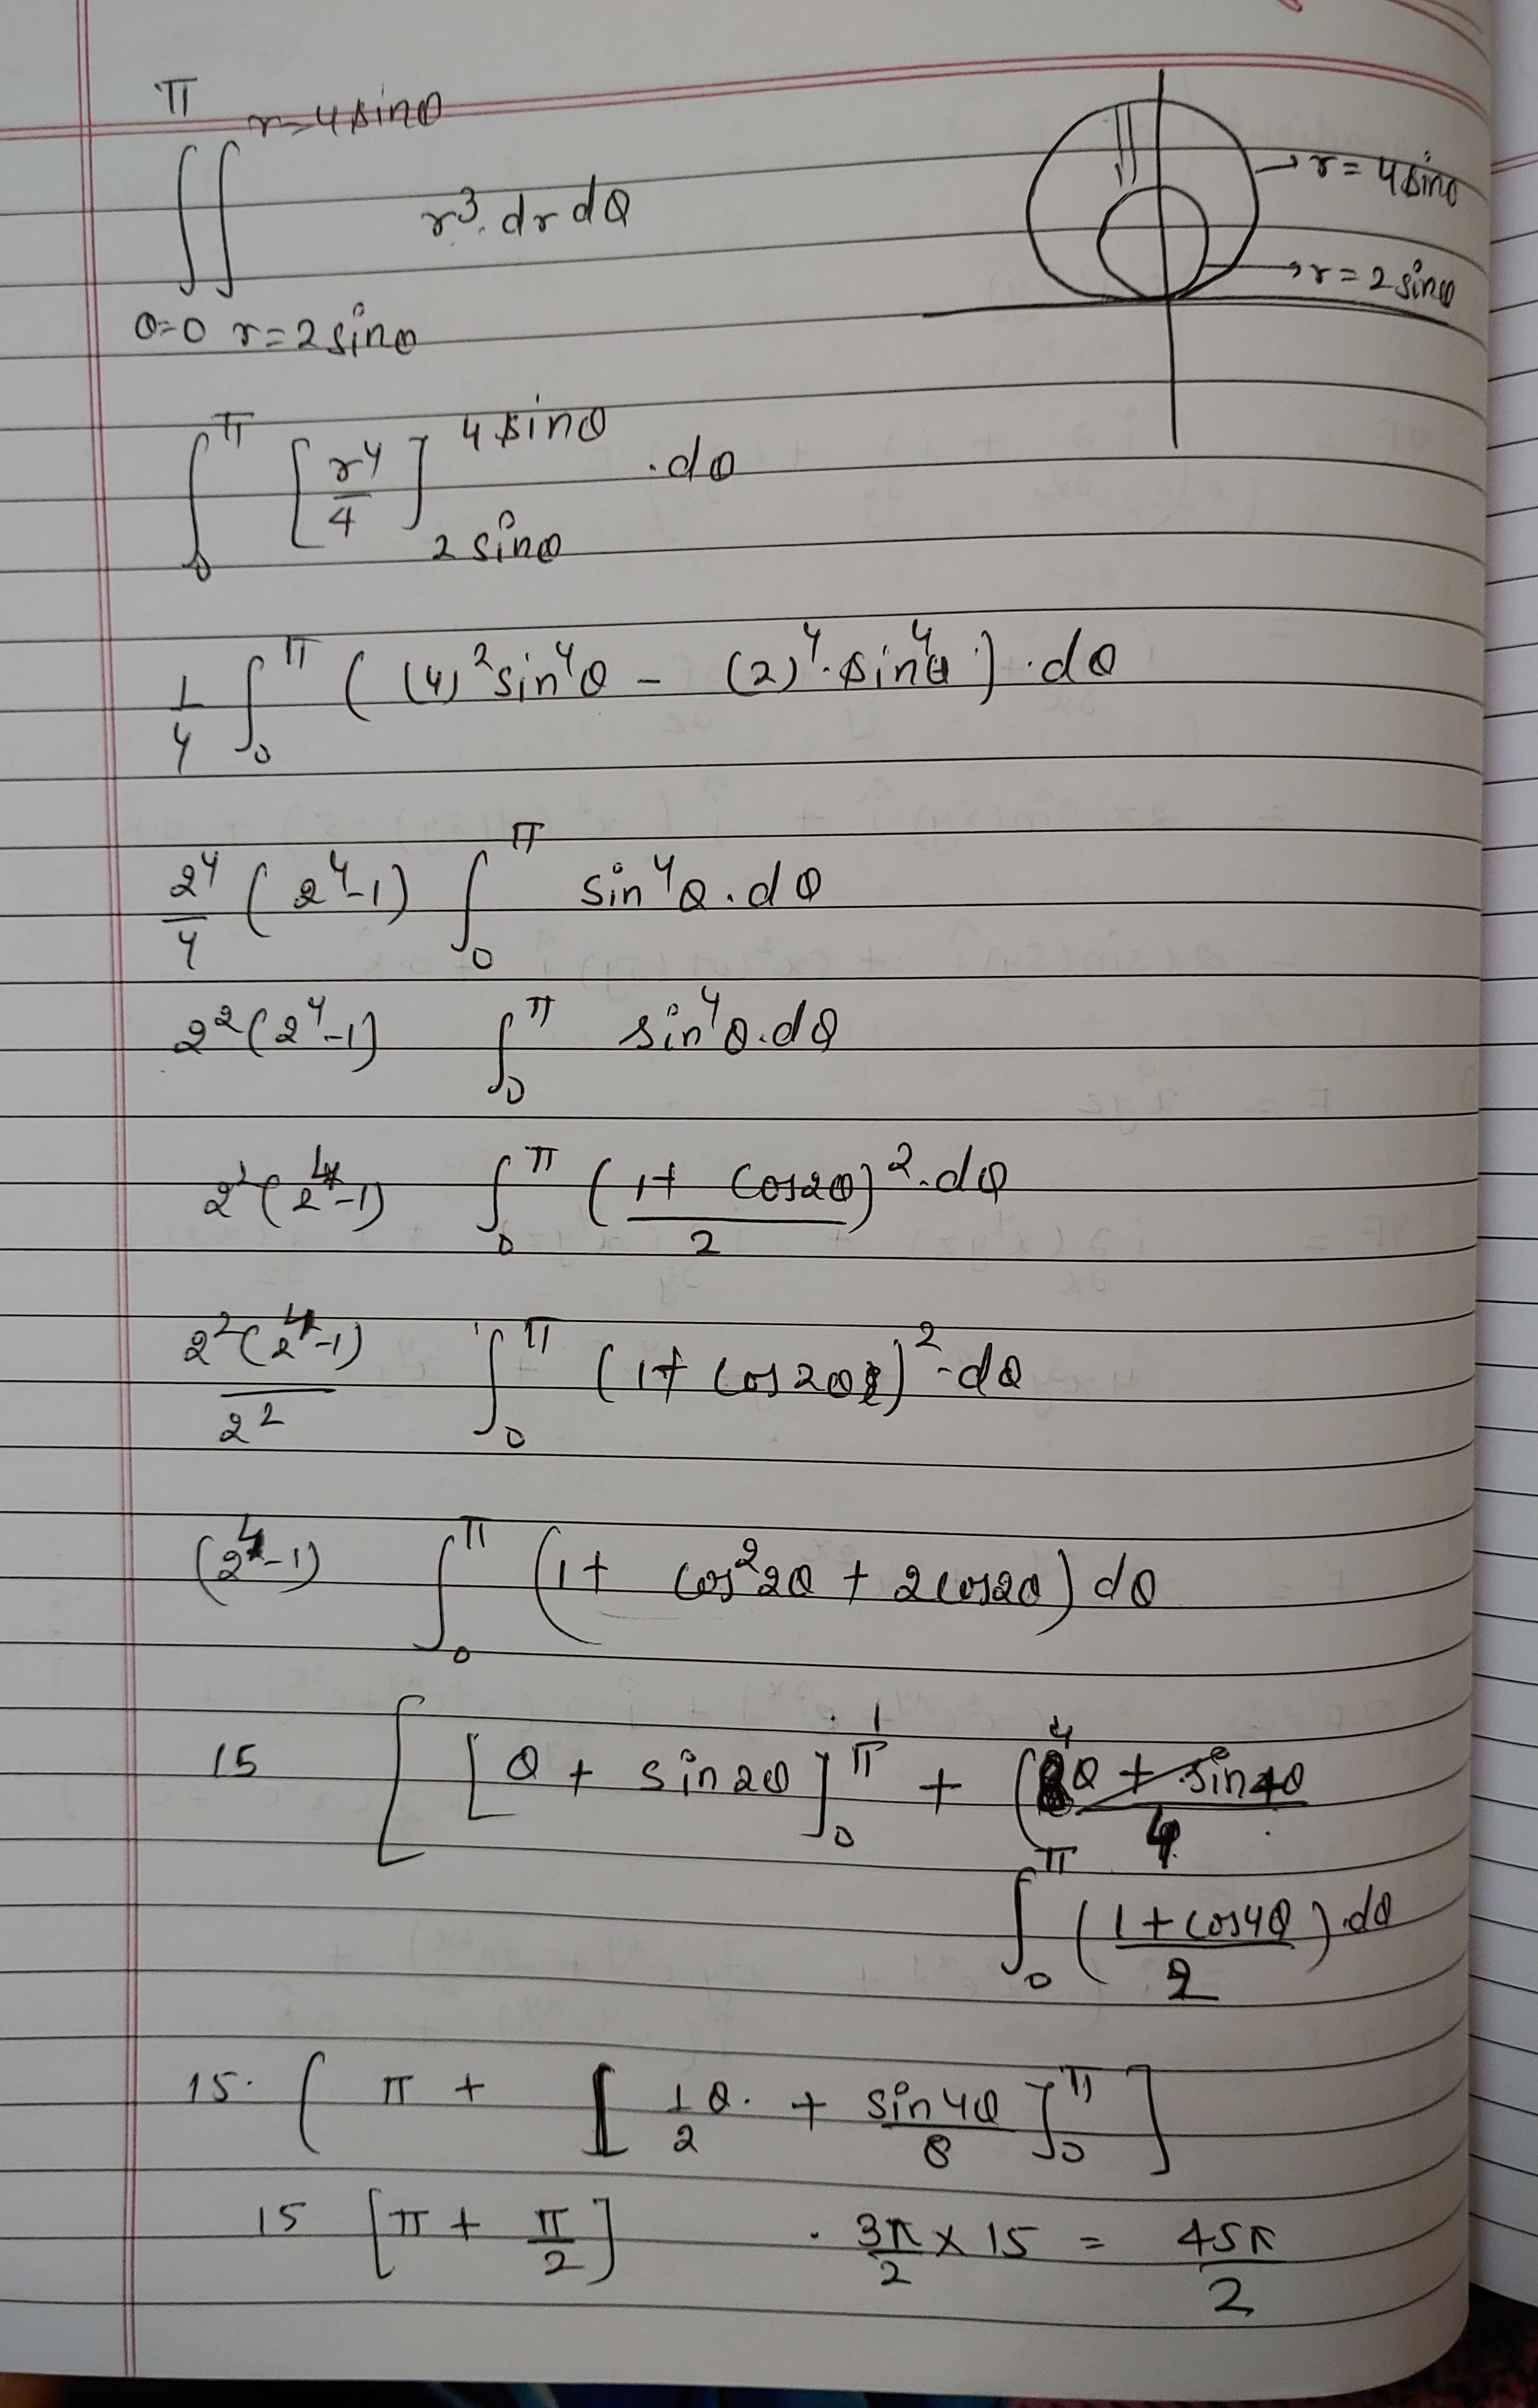 π
r=4sinθ
∫∫ r³.drdθ
θ=0 r=2sinθ
→r=4sinθ
→r=2sinθ
∫₀^π [r⁴/4]_{2sinθ}^{4sinθ} .dθ
1/4 ∫₀^π ((4)²sin⁴θ - (2)⁴.sin⁴θ).dθ
2⁴/4 (2⁴-1) ∫₀^π sin⁴θ.dθ
2²(2⁴-1) ∫₀^π sin⁴θ.dθ
2²(2⁴-1) ∫₀^π (1+cos2θ/2)².dθ
2²(2⁴-1)/2² ∫₀^π (1+cos2θ)².dθ
(2⁴-1) ∫₀^π (1+cos²2θ+2cos2θ)dθ
15 [[θ+sin2θ]₀^π + (4θ+sin4θ/4
∫₀^π (1+cos4θ/2).dθ
15. [π+[1/2 θ.+sin4θ/8]₀^π]
15 [π+π/2] . 3π/2×15=45π/2